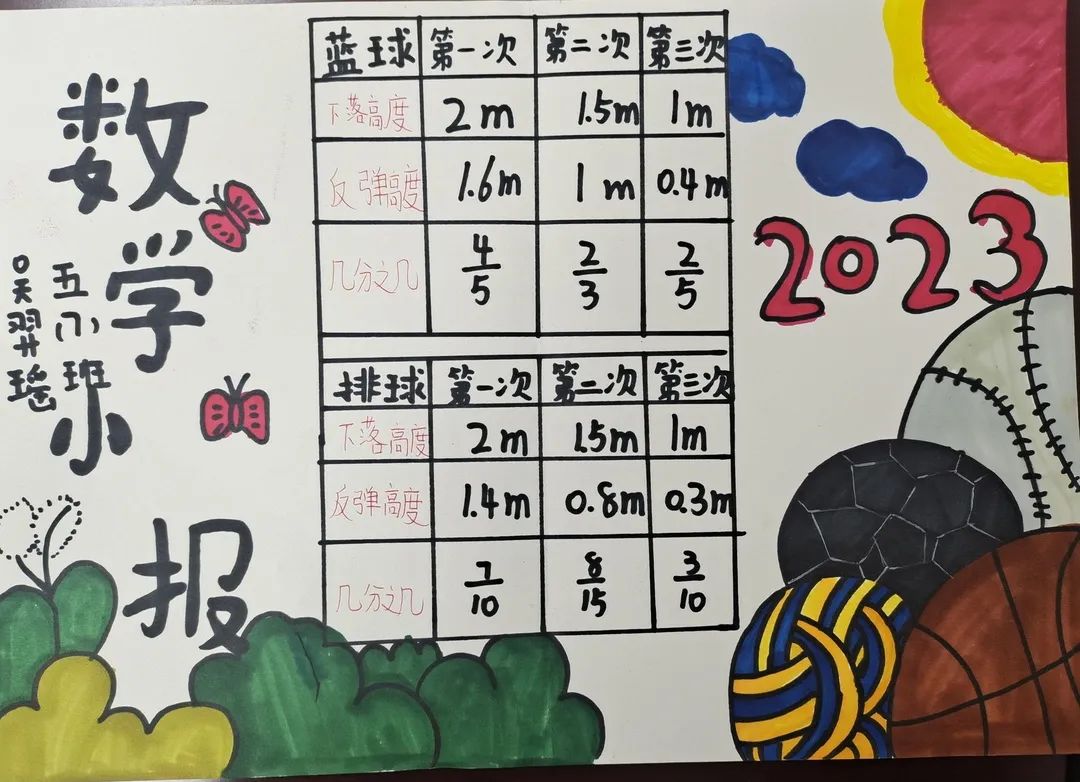 数学小报
五(1)班
吴羿瑶
2023
蓝球 第一次 第二次 第三次
下落高度 2m 1.5m 1m
反弹高度 1.6m 1m 0.4m
几分之几 4/5 2/3 2/5
排球 第一次 第二次 第三次
下落高度 2m 1.5m 1m
反弹高度 1.4m 0.8m 0.3m
几分之几 7/10 8/15 3/10